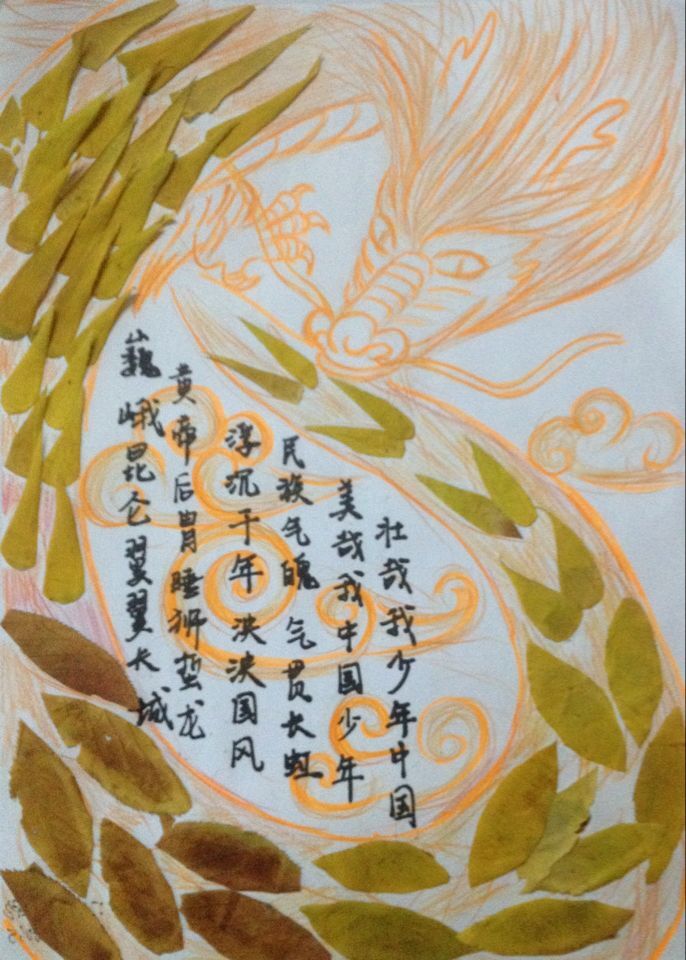 巍峨昆仑翼翼长城
黄帝后胄睡狮蛰龙
浮沉千年泱泱国风
民族气魄气贯长虹
美哉我中国少年
壮哉我少年中国